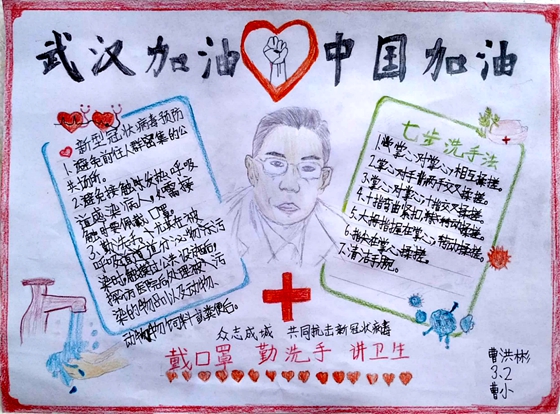 武汉加油 中国加油
新型冠状病毒预防
1.避免前往人群密集的公
共场所。
2.避免接触发热呼吸
道感染病人,如需接
触时要佩戴口罩。
3.勤洗手,尤其在被
七步洗手法
1.掌心对掌心相互揉搓。
2.掌心对手背两手交叉揉搓。
3.掌心对掌心十指交叉揉搓。
4.十指弯曲紧扣转动揉搓。
5.大拇指握在掌心转动揉搓。
6.指尖在掌心揉搓。
7.清洁手腕。
众志成城 共同抗击新冠状病毒
戴口罩 勤洗手 讲卫生
曹洪彬
3.2
曹小